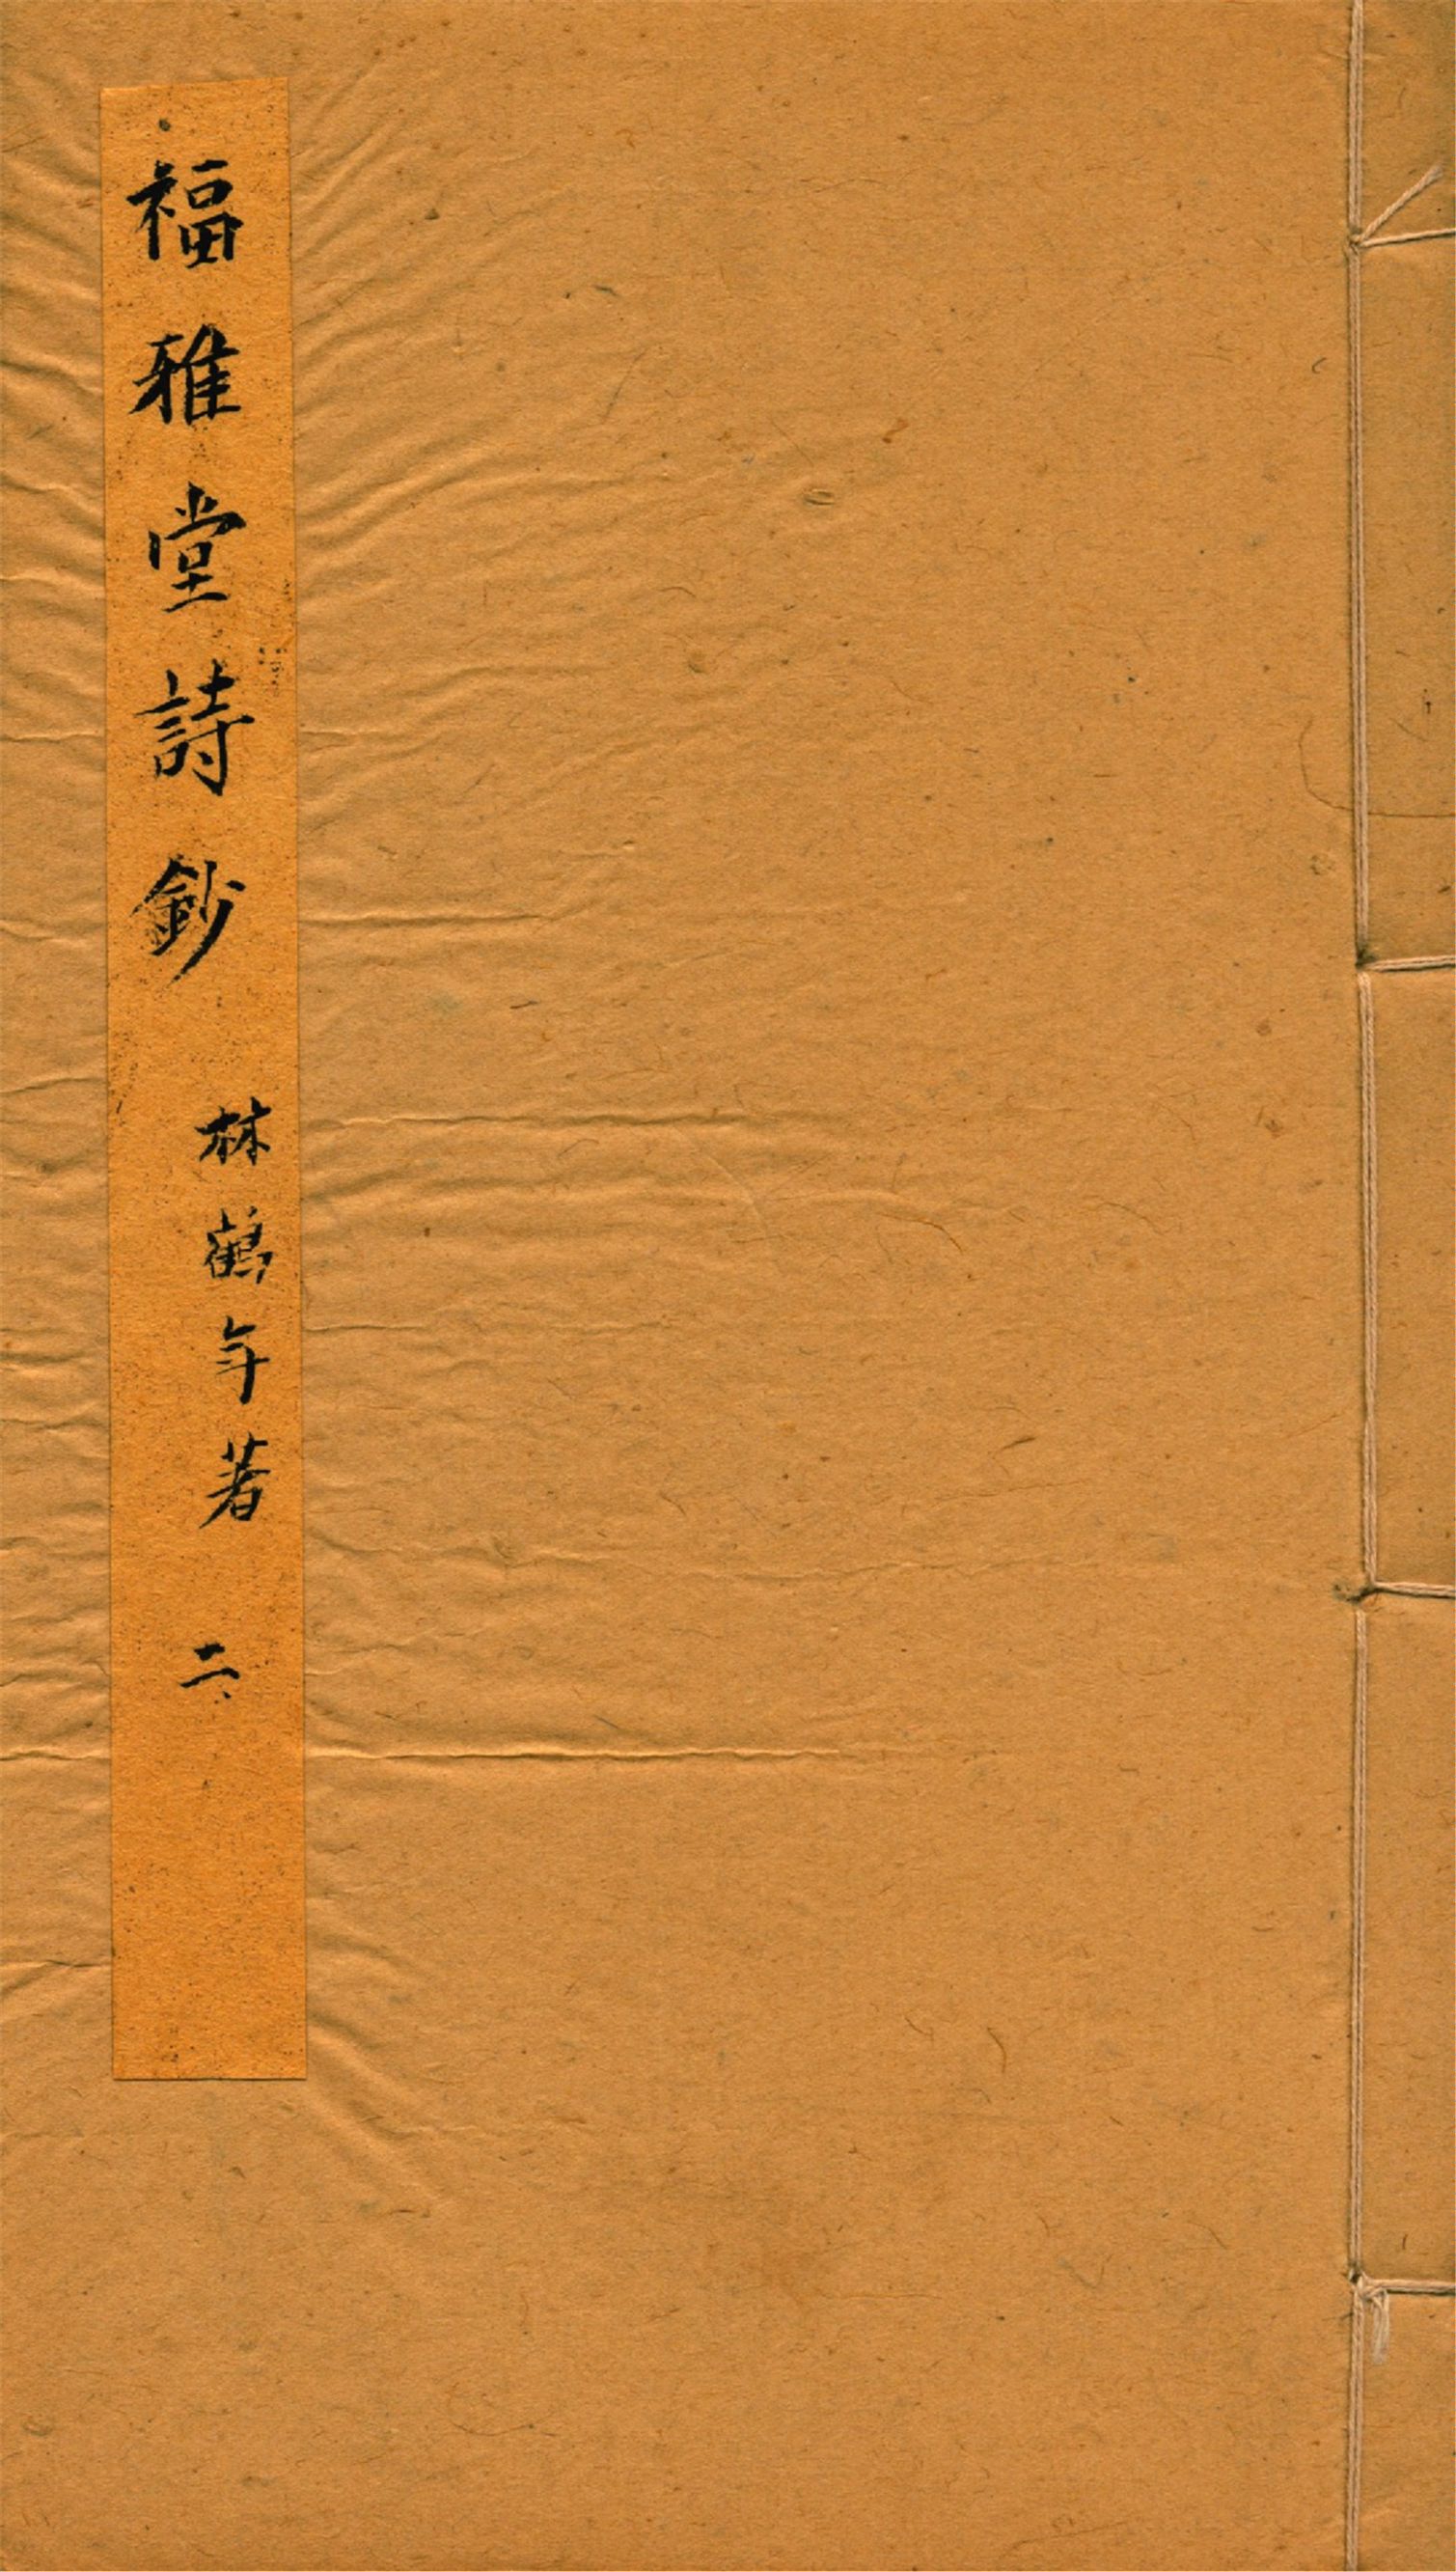 福雅堂詩鈔
林鶴年著
二